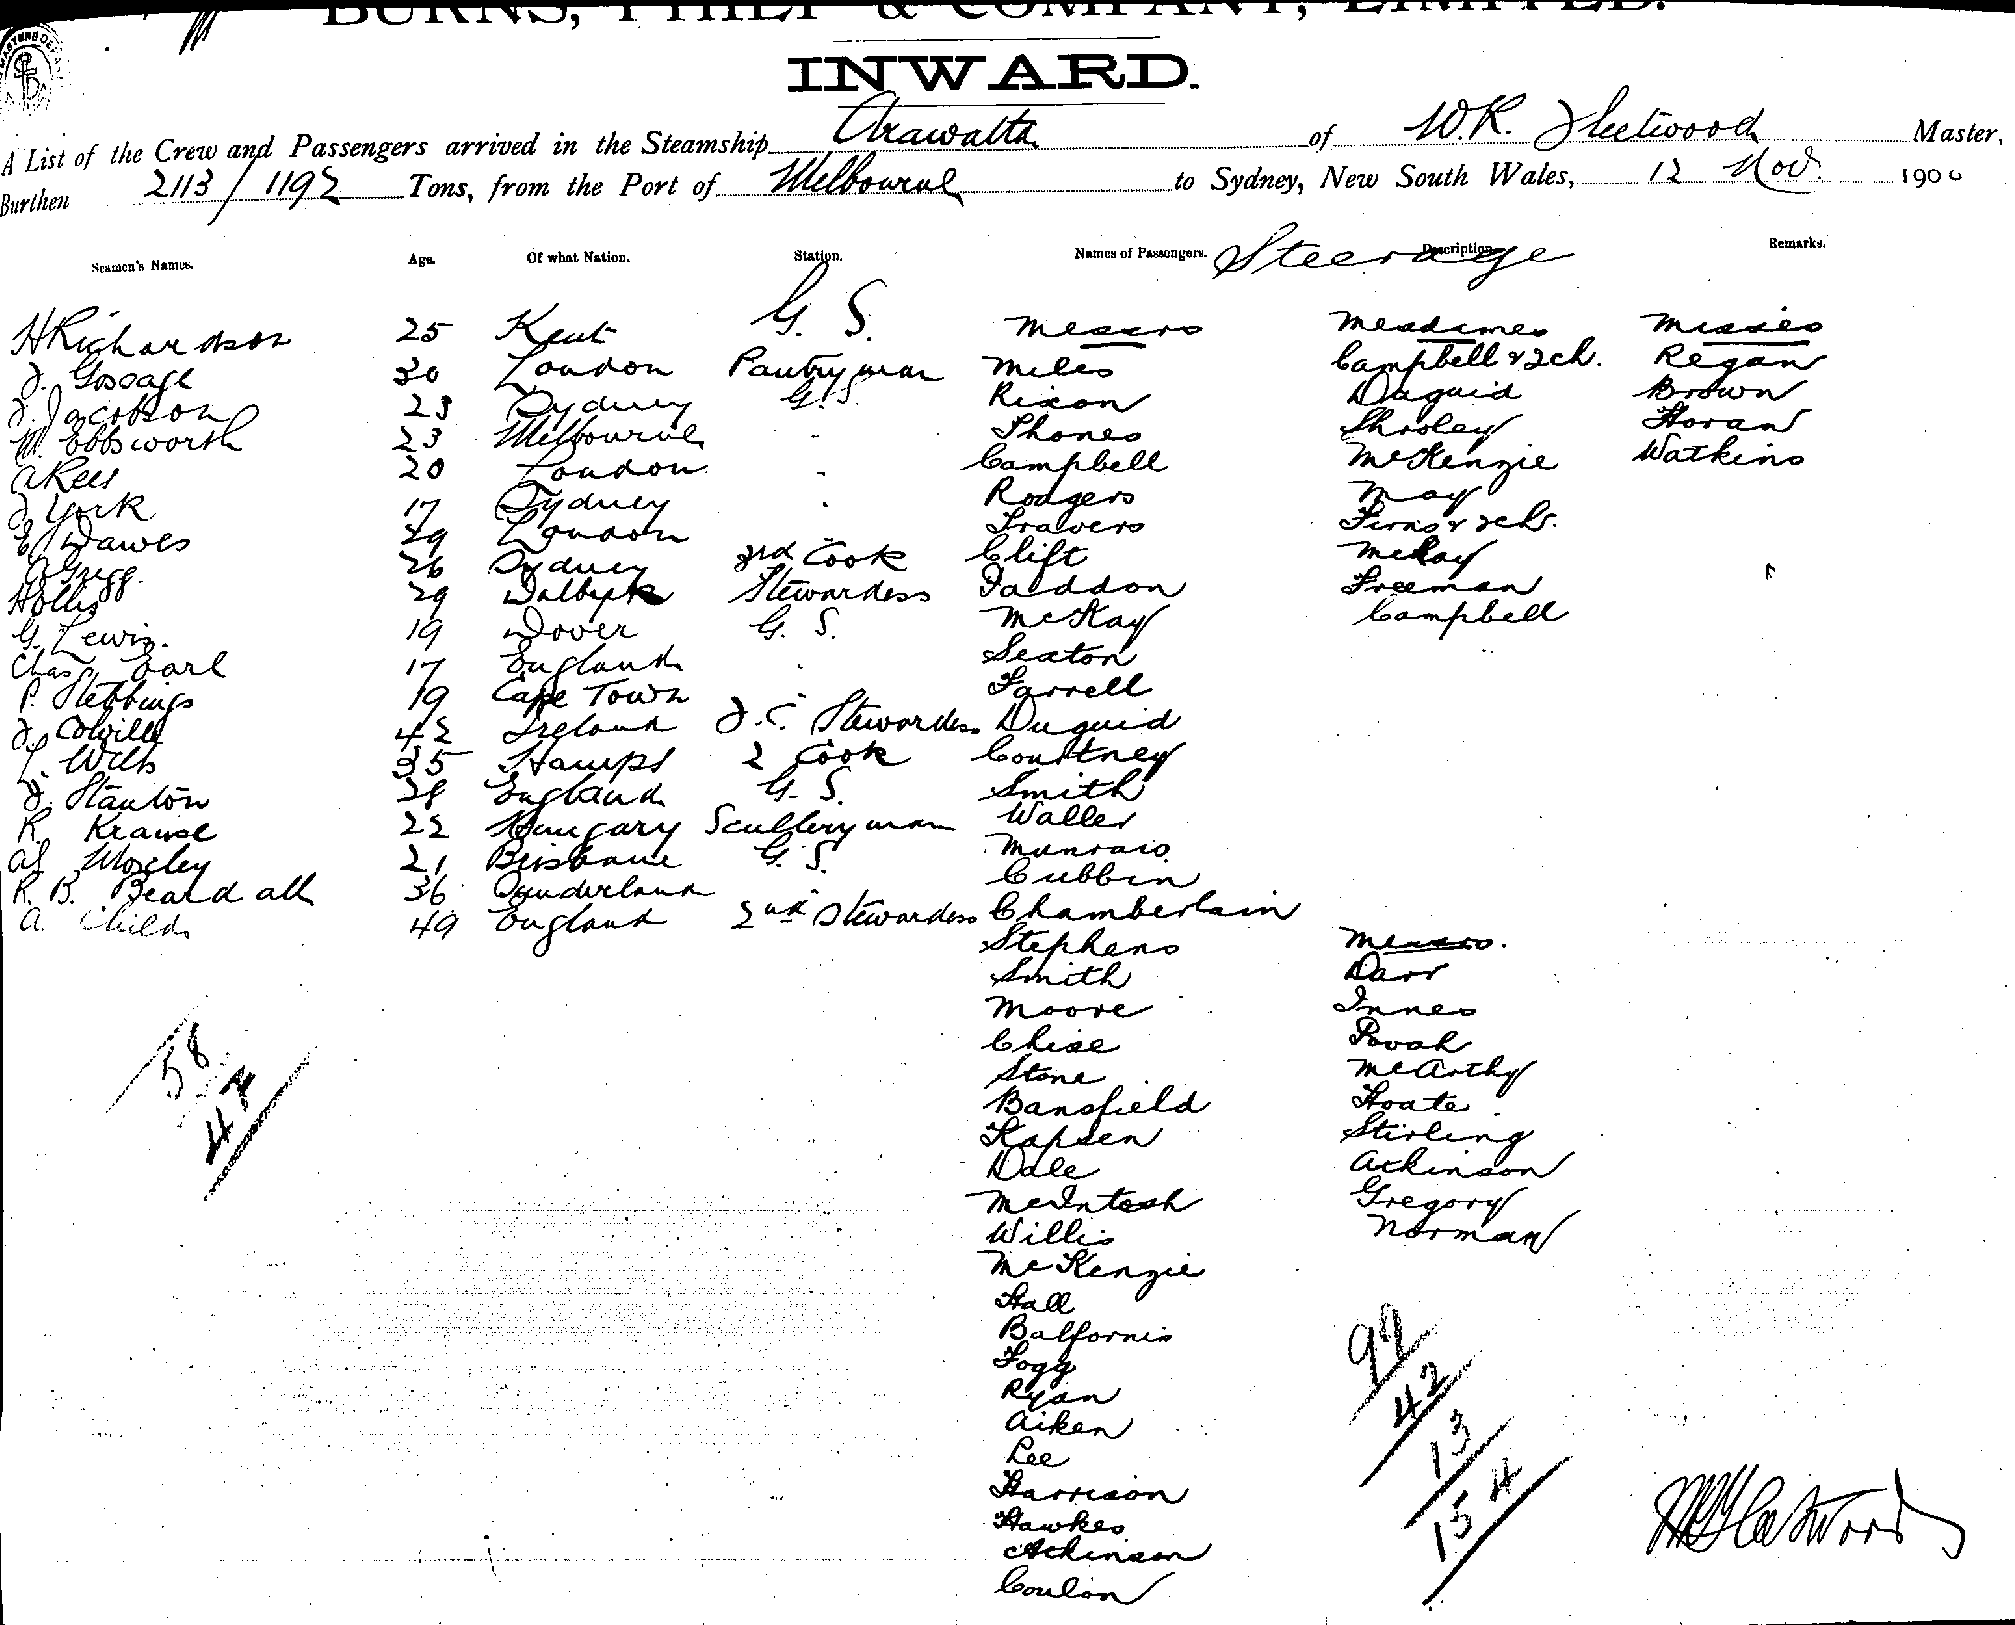 BURNS, PHILP & COMPANY, LIMITED.
INWARD.
A List of the Crew and Passengers arrived in the Steamship Arawatta of W.R. Fleetwood Master,
Burthen 2113/1192 Tons, from the Port of Melbourne to Sydney, New South Wales, 12 Nov. 1900
Seamen's Names. Age. Of what Nation. Station. Names of Passengers. Steerage Description. Remarks.
H Richardson 25 Kent G. S. Messrs Mesdames Misses
J. Gossage 30 London Pantryman Miles Campbell & 2 ch. Regan
J. Jacobson 23 Sydney G. S. Rixon Duguid Brown
M. Ebbsworth 23 Melbourne Phones Shooley Horan
A Rees 20 London Campbell McKenzie Watkins
J York 17 Sydney Rodgers May
E J Dawes 29 London Travers Firns & 2 ch.
A Grigg. 26 Sydney 3rd Cook Clift McKay
Hollis 29 Stewardess Faddon Freeman
G. Lewis. 19 Dover G. S. McKay Campbell
Chas Earl 17 England Seaton
P. Stebbings 19 Cape Town Farrell
J. Colville 42 Ireland F. C. Stewardess Duguid
L. Wills 35 Hamps 2 Cook Courtney
J. Stanton 28 England G. S. Smith
R. Krause 22 Hungary Scullery man Waller
Al Moxley 21 Brisbane G. S. Munraio
R. B. Beardall 36 Sunderland Cubbin
A. Childs 49 England 2nd Stewardess Chamberlain
Stephens Messrs.
Smith Darr
Moore Innes
Chise Povah
Stone McArthy
Bansfield Hoate
Kapsen Stirling
Dale Atkinson
McIntosh Gregory
Willis Norman
McKenzie
Hall
Balfornis
Fogg
Ryan
Aiken
Lee
Harrison
Hawkes
Atkinson
Coulon
58
47
42
13
154
W R Fleetwood